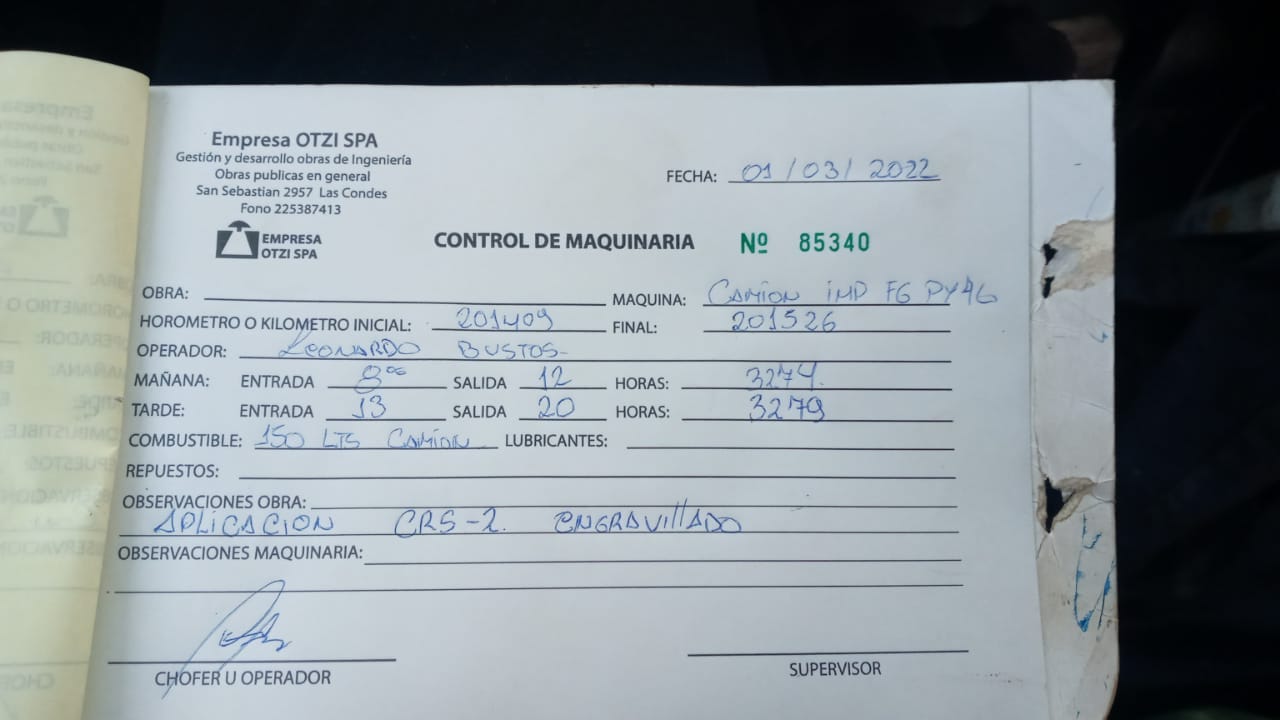 Empresa OTZI SPA
Gestión y desarrollo obras de Ingeniería
Obras publicas en general
San Sebastian 2957 Las Condes
Fono 225387413
EMPRESA
OTZI SPA
FECHA: 01/03/2022
CONTROL DE MAQUINARIA Nº 85340
OBRA: MAQUINA: CAMION IMP FG PY46
HOROMETRO O KILOMETRO INICIAL: 201409 FINAL: 201526
OPERADOR: LEONARDO BUSTOS-
MAÑANA: ENTRADA 8°° SALIDA 12 HORAS: 3274.
TARDE: ENTRADA 13 SALIDA 20 HORAS: 3279
COMBUSTIBLE: 150 LTS CAMION LUBRICANTES:
REPUESTOS:
OBSERVACIONES OBRA:
APLICACION CRS-2. ENGRAVILLADO
OBSERVACIONES MAQUINARIA:
CHOFER U OPERADOR SUPERVISOR